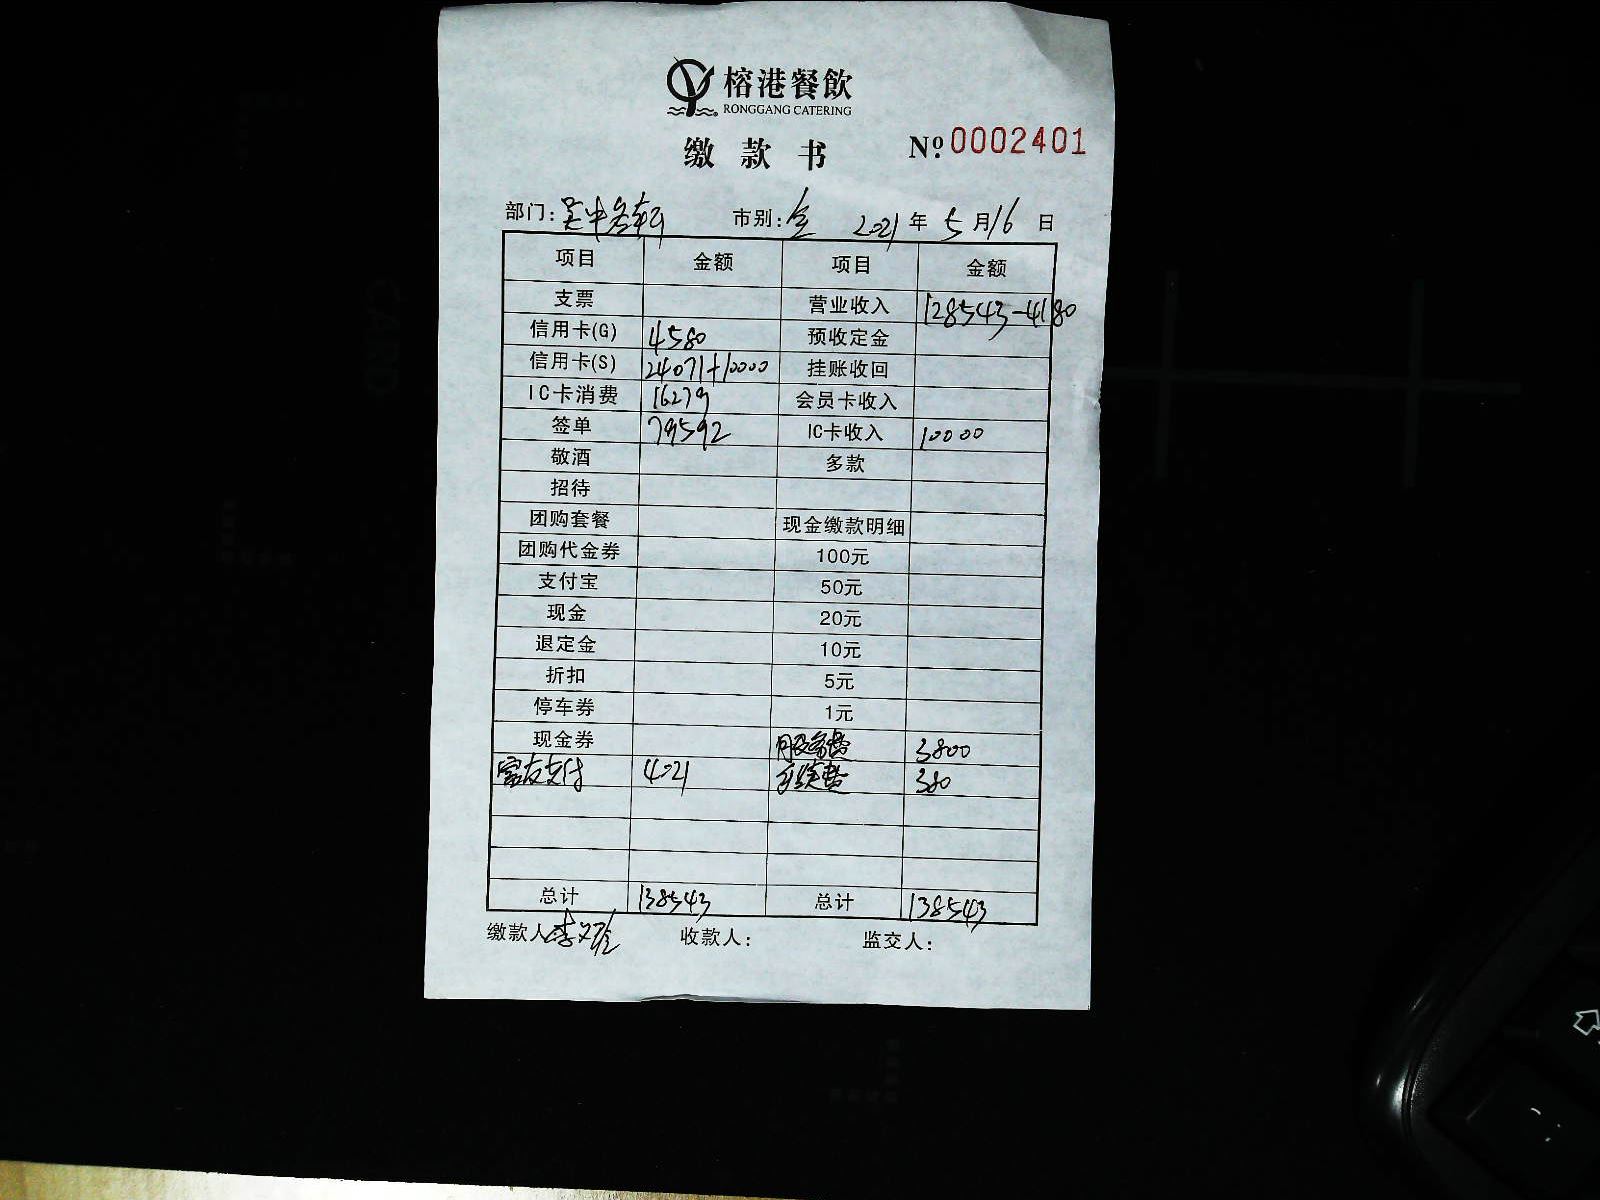 榕港餐飲
RONGGANG CATERING
缴款书 Nº 0002401
部门: 市别:全 2021年5月16日
项目 金额 项目 金额
支票 营业收入 128543-4180
信用卡(G) 4580 预收定金
信用卡(S) 24071+10000 挂账收回
IC卡消费 16279 会员卡收入
签单 79592 IC卡收入 10000
敬酒 多款
招待
团购套餐 现金缴款明细
团购代金券 100元
支付宝 50元
现金 20元
退定金 10元
折扣 5元
停车券 1元
现金券 服务费 3800
富友支付 4021 手续费 380
总计 138543 总计 138543
缴款人 收款人: 监交人: